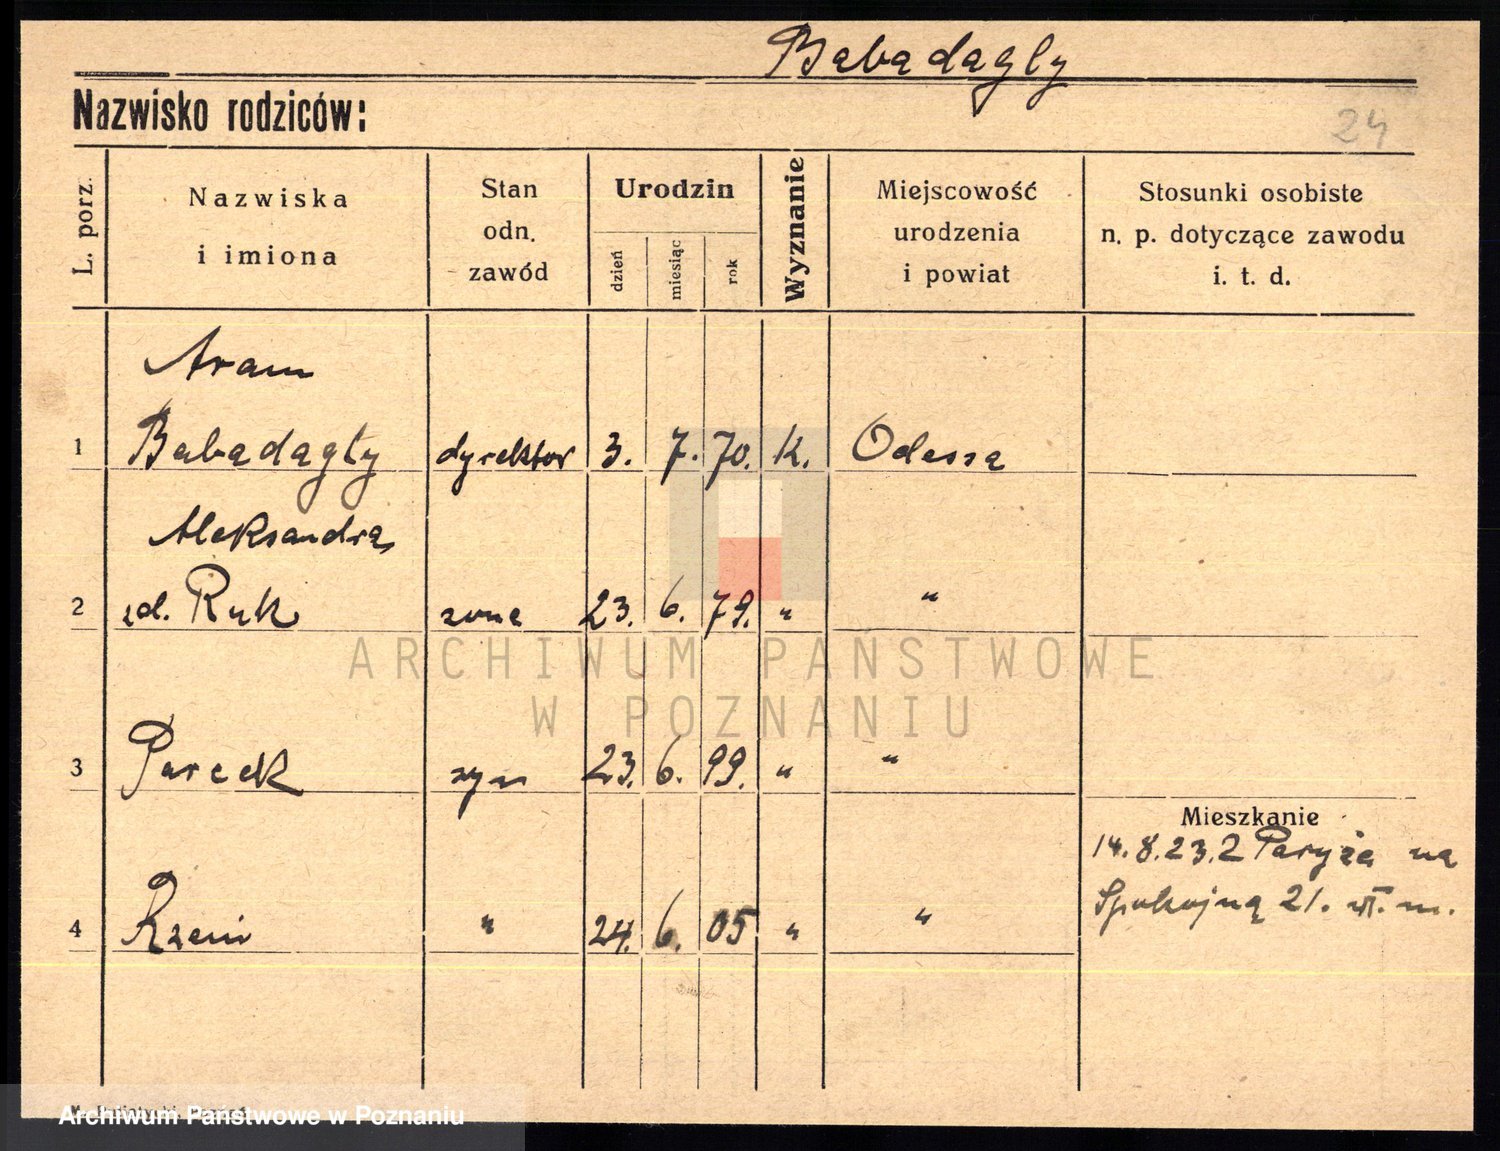 Babadagly
Nazwisko rodziców:
24
L. porz.
Nazwiska
i imiona
Stan
odn.
zawód
Urodzin
dzień
miesiąc
rok
Wyznanie
Miejscowość
urodzenia
i powiat
Stosunki osobiste
n. p. dotyczące zawodu
i. t. d.
Aram
1 Babadagły dyrektor 3. 7. 70. K. Odessa
Aleksandra
2 zd. Ruk żona 23. 6. 79. " "
ARCHIWUM PAŃSTWOWE
W POZNANIU
3 syn 23. 6. 99. " "
Mieszkanie
14.8.23. z Paryża na
Spokojną 21. wł. m.
4 " 24. 6. 05 " "
Archiwum Państwowe w Poznaniu